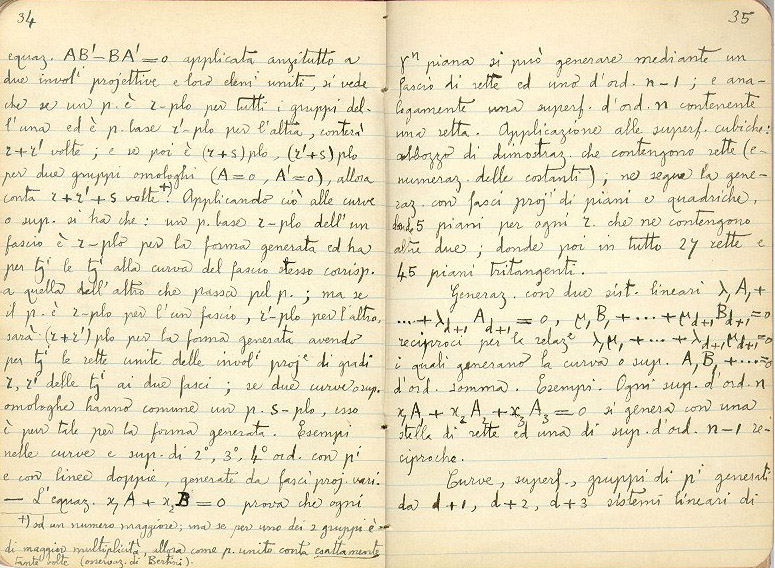 34
equaz. AB'-BA'=0 applicata anzitutto a
due invol' projettive e loro elemi uniti, si vede
che se un p. è r-plo per tutti i gruppi del-
l'una ed è p. base r'-plo per l'altra, conterà
r+r' volte; e se poi è (r+s)plo, (r'+s)plo
per due gruppi omologhi (A=0, A'=0), allora
conta r+r'+s volte +). Applicando ciò alle curve
o sup. si ha che: un p. base r-plo dell'un
fascio è r-plo per la forma generata ed ha
per tgi le tgi alla curva del fascio stesso corrisp.
a quella dell'altro che passa pel p.; ma se
il p. è r-plo per l'un fascio, r'-plo per l'altro,
sarà (r+r')plo per la forma generata avendo
per tgi le rette unite delle involi proje di gradi
r, r' delle tgi ai due fasci; se due curve o sup.
omologhe hanno comune un p. s-plo, esso
è pur tale per la forma generata. Esempi
nelle curve e sup. di 2°, 3°, 4° ord. con pi
e con linee doppie, generate da fasci proj. vari.
— L'equaz. x₁A + x₂B = 0 prova che ogni
+) od un numero maggiore; ma se per uno dei 2 gruppi è
di maggior multiplicità, allora come p. unito conta esattamente
tante volte (osservaz. di Bertini).
35
γⁿ piana si può generare mediante un
fascio di rette ed uno d'ord. n-1; e ana-
logamente una superf. d'ord. n contenente
una retta. Applicazione alle superf. cubiche:
abbozzo di dimostraz. che contengono rette (e-
numeraz. delle costanti); ne segue la gene-
raz. con fasci proji di piani e quadriche,
donde 5 piani per ogni r. che ne contengono
altre due; donde poi in tutto 27 rette e
45 piani tritangenti.
Generaz. con due sist. lineari λ₁A₁+
...+λd+1 Ad+1 = 0, μ₁B₁+...+μd+1 Bd+1 = 0
reciproci per la relaze λ₁μ₁+...+λd+1 μd+1 = 0
i quali generano la curva o sup. A₁B₁+...=0
d'ord. somma. Esempi. Ogni sup. d'ord. n
x₁A₁+x₂A₂+x₃A₃=0 si genera con una
stella di rette ed una di sup. d'ord. n-1 re-
ciproche.
Curve, superf., gruppi di pi generati
da d+1, d+2, d+3 sistemi lineari di